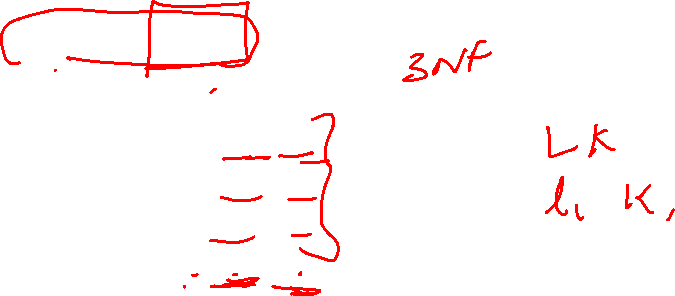 3NF
L K
l₁ K₁